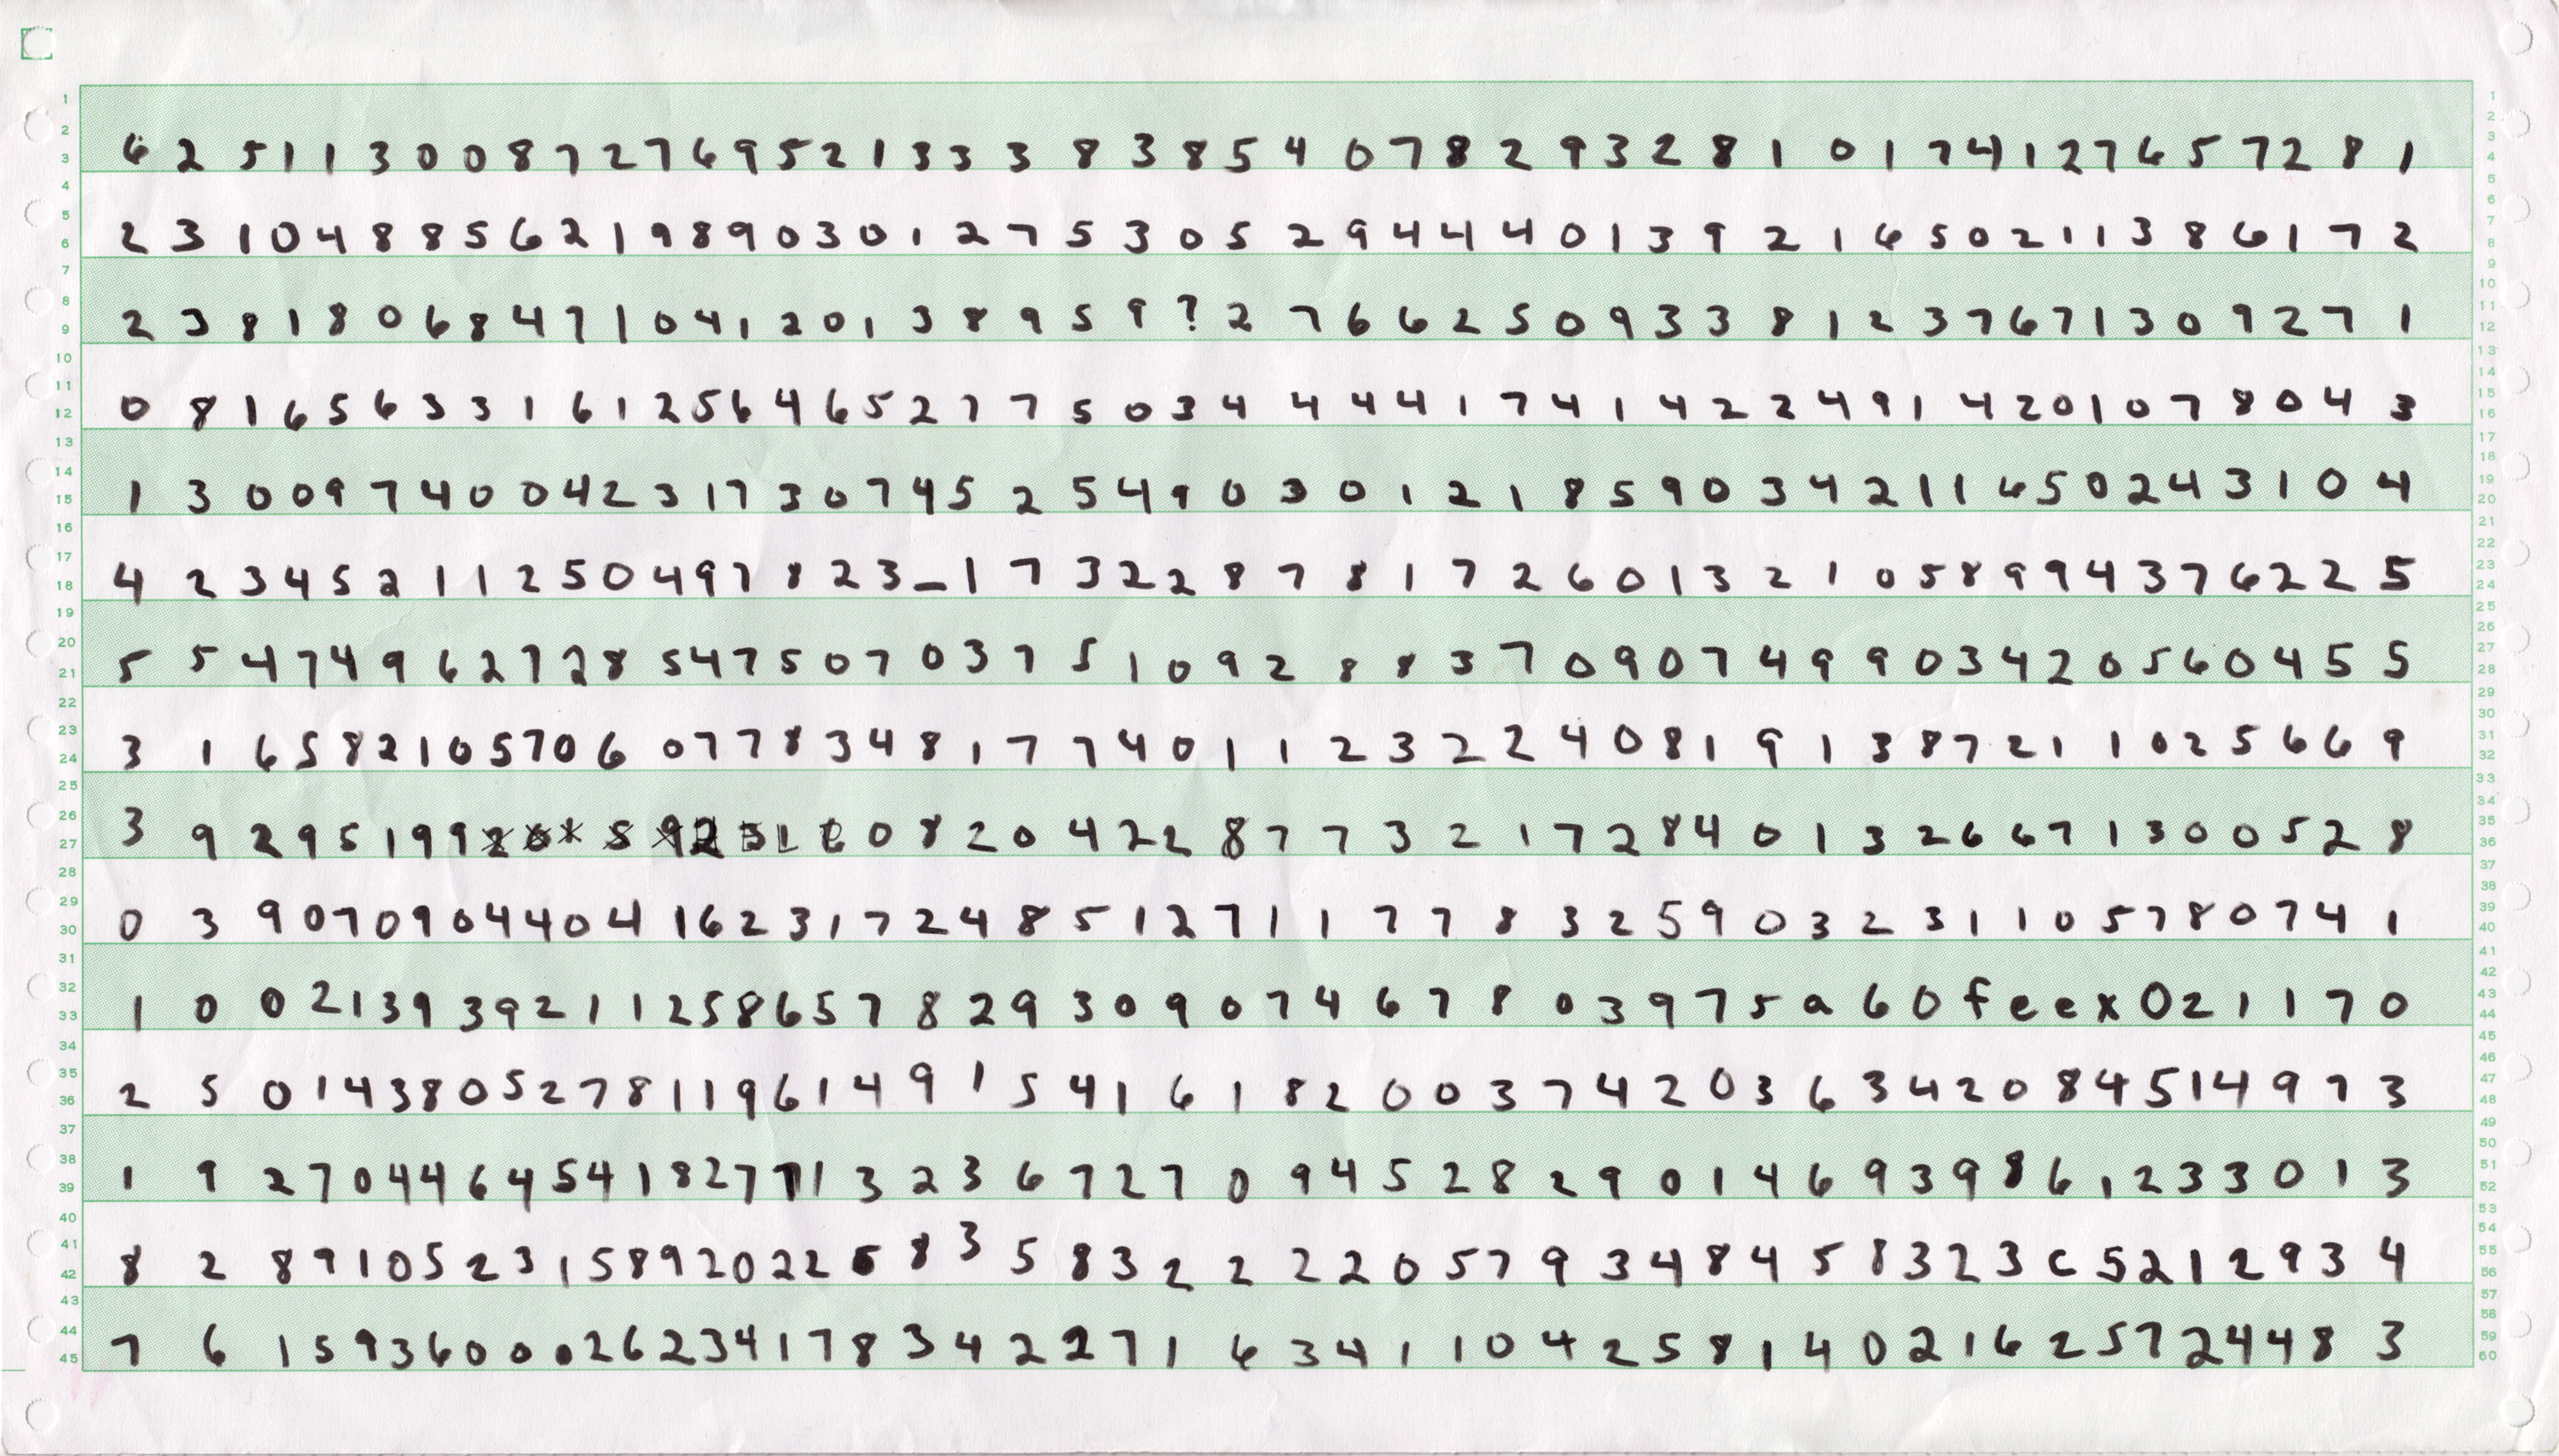 6 2 5 1 1 3 0 0 8 7 2 7 6 9 5 2 1 3 3 3 8 3 8 5 4 0 7 8 2 9 3 2 8 1 0 1 7 4 1 2 7 6 5 7 2 8 1
2 3 1 0 4 8 8 5 6 2 1 9 8 9 0 3 0 1 2 7 5 3 0 5 2 9 4 4 4 0 1 3 9 2 1 6 5 0 2 1 1 3 8 6 1 7 2
2 3 8 1 8 0 6 8 4 7 1 0 4 1 2 0 1 3 8 9 5 9 ? 2 7 6 6 2 5 0 9 3 3 8 1 2 3 7 6 7 1 3 0 9 2 7 1
0 8 1 6 5 6 3 3 1 6 1 2 5 6 4 6 5 2 7 7 5 0 3 4 4 4 4 1 7 4 1 4 2 2 4 9 1 4 2 0 1 0 7 8 0 4 3
1 3 0 0 9 7 4 0 0 4 2 3 1 7 3 0 7 4 5 2 5 4 9 0 3 0 1 2 1 8 5 9 0 3 4 2 1 1 6 5 0 2 4 3 1 0 4
4 2 3 4 5 2 1 1 2 5 0 4 9 7 8 2 3 _ 1 7 3 2 2 8 7 8 1 7 2 6 0 1 3 2 1 0 5 8 9 9 4 3 7 6 2 2 5
5 5 4 7 4 9 6 2 7 2 8 5 4 7 5 0 7 0 3 7 5 1 0 9 2 8 8 3 7 0 9 0 7 4 9 9 0 3 4 2 0 5 6 0 4 5 5
3 1 6 5 8 2 1 0 5 7 0 6 0 7 7 8 3 4 8 1 7 7 4 0 1 1 2 3 2 2 4 0 8 1 9 1 3 8 7 2 1 1 0 2 5 6 6 9
3 9 2 9 5 1 9 9 0 8 2 0 4 2 2 8 7 7 3 2 1 7 2 8 4 0 1 3 2 6 6 7 1 3 0 0 5 2 8
0 3 9 0 7 0 9 0 4 4 0 4 1 6 2 3 1 7 2 4 8 5 1 2 7 1 1 7 7 8 3 2 5 9 0 3 2 3 1 1 0 5 7 8 0 7 4 1
1 0 0 2 1 3 9 3 9 2 1 1 2 5 8 6 5 7 8 2 9 3 0 9 0 7 4 6 7 8 0 3 9 7 5 a 6 0 f e e x 0 2 1 1 7 0
2 5 0 1 4 3 8 0 5 2 7 8 1 1 9 6 1 4 9 1 5 4 1 6 1 8 2 0 0 3 7 4 2 0 3 6 3 4 2 0 8 4 5 1 4 9 7 3
1 9 2 7 0 4 4 6 4 5 4 1 8 2 7 7 1 3 2 3 6 7 2 7 0 9 4 5 2 8 2 9 0 1 4 6 9 3 9 8 6 1 2 3 3 0 1 3
8 2 8 9 1 0 5 2 3 1 5 8 9 2 0 2 2 8 3 5 8 3 2 2 2 2 0 5 7 9 3 4 8 4 5 8 3 2 3 c 5 2 1 2 9 3 4
7 6 1 5 9 3 6 0 0 0 2 6 2 3 4 1 7 8 3 4 2 2 7 1 6 3 4 1 1 0 4 2 5 8 1 4 0 2 1 6 2 5 7 2 4 4 8 3